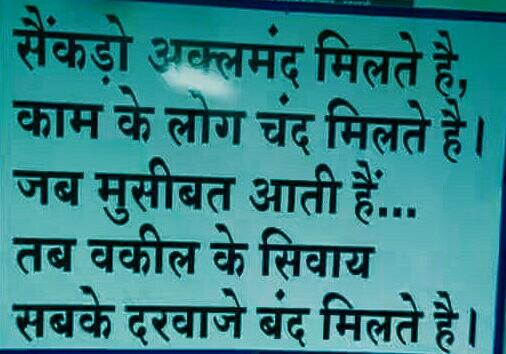 सैंकड़ो अक्लमंद मिलते है,
काम के लोग चंद मिलते है।
जब मुसीबत आती हैं...
तब वकील के सिवाय
सबके दरवाजे बंद मिलते है।